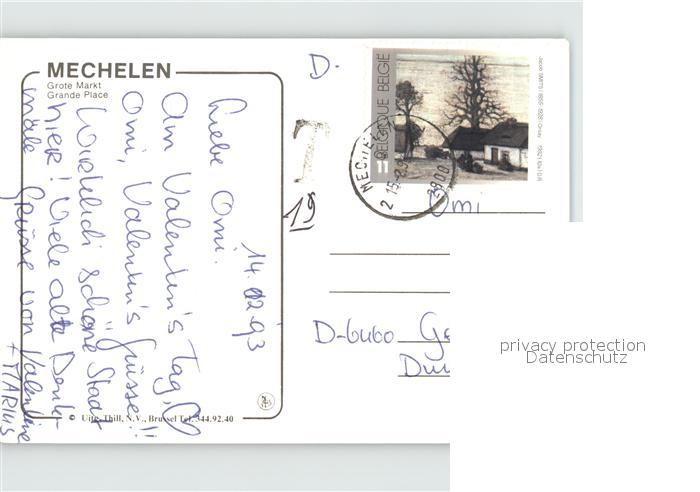 MECHELEN
Grote Markt
Grande Place
14.02.93
Liebe Omi.
Am Valentin's Tag,
Omi, Valentin's Grüsse!!
Wirklich schöne Stadt
hier! Viele alte Denk-
mäle Grüsse von Valentine
+ MARIUS
© Uitg. Thill, N.V., Brussel Tel. 344.92.40
D.
T
19
BELGIQUE BELGIE
MECHE
2800
Omi
D-6460
privacy protection
Datenschutz